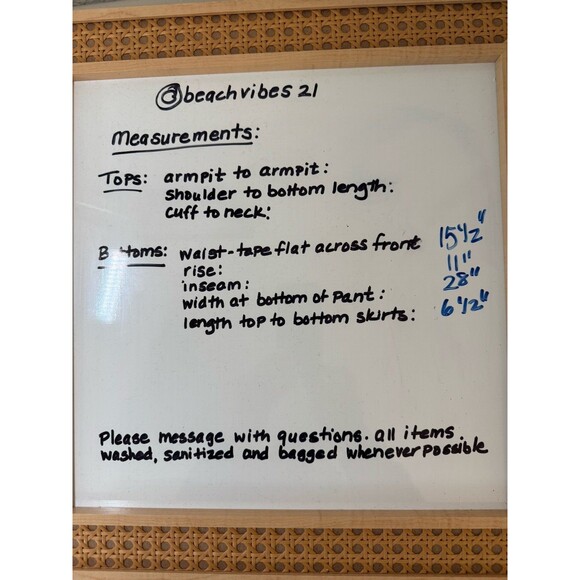 @beachvibes 21
Measurements:
Tops: armpit to armpit:
shoulder to bottom length:
cuff to neck:
Bottoms: waist-tape flat across front 15 1/2"
rise: 11"
inseam: 28"
width at bottom of pant: 6 1/2"
length top to bottom skirts:
Please message with questions. all items
washed, sanitized and bagged whenever possible